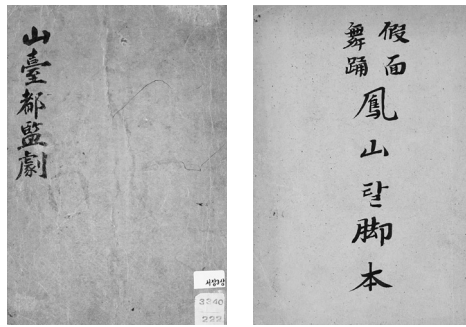 山臺都監劇
서강3상
3340
222
假面
舞踊
鳳山탈脚本